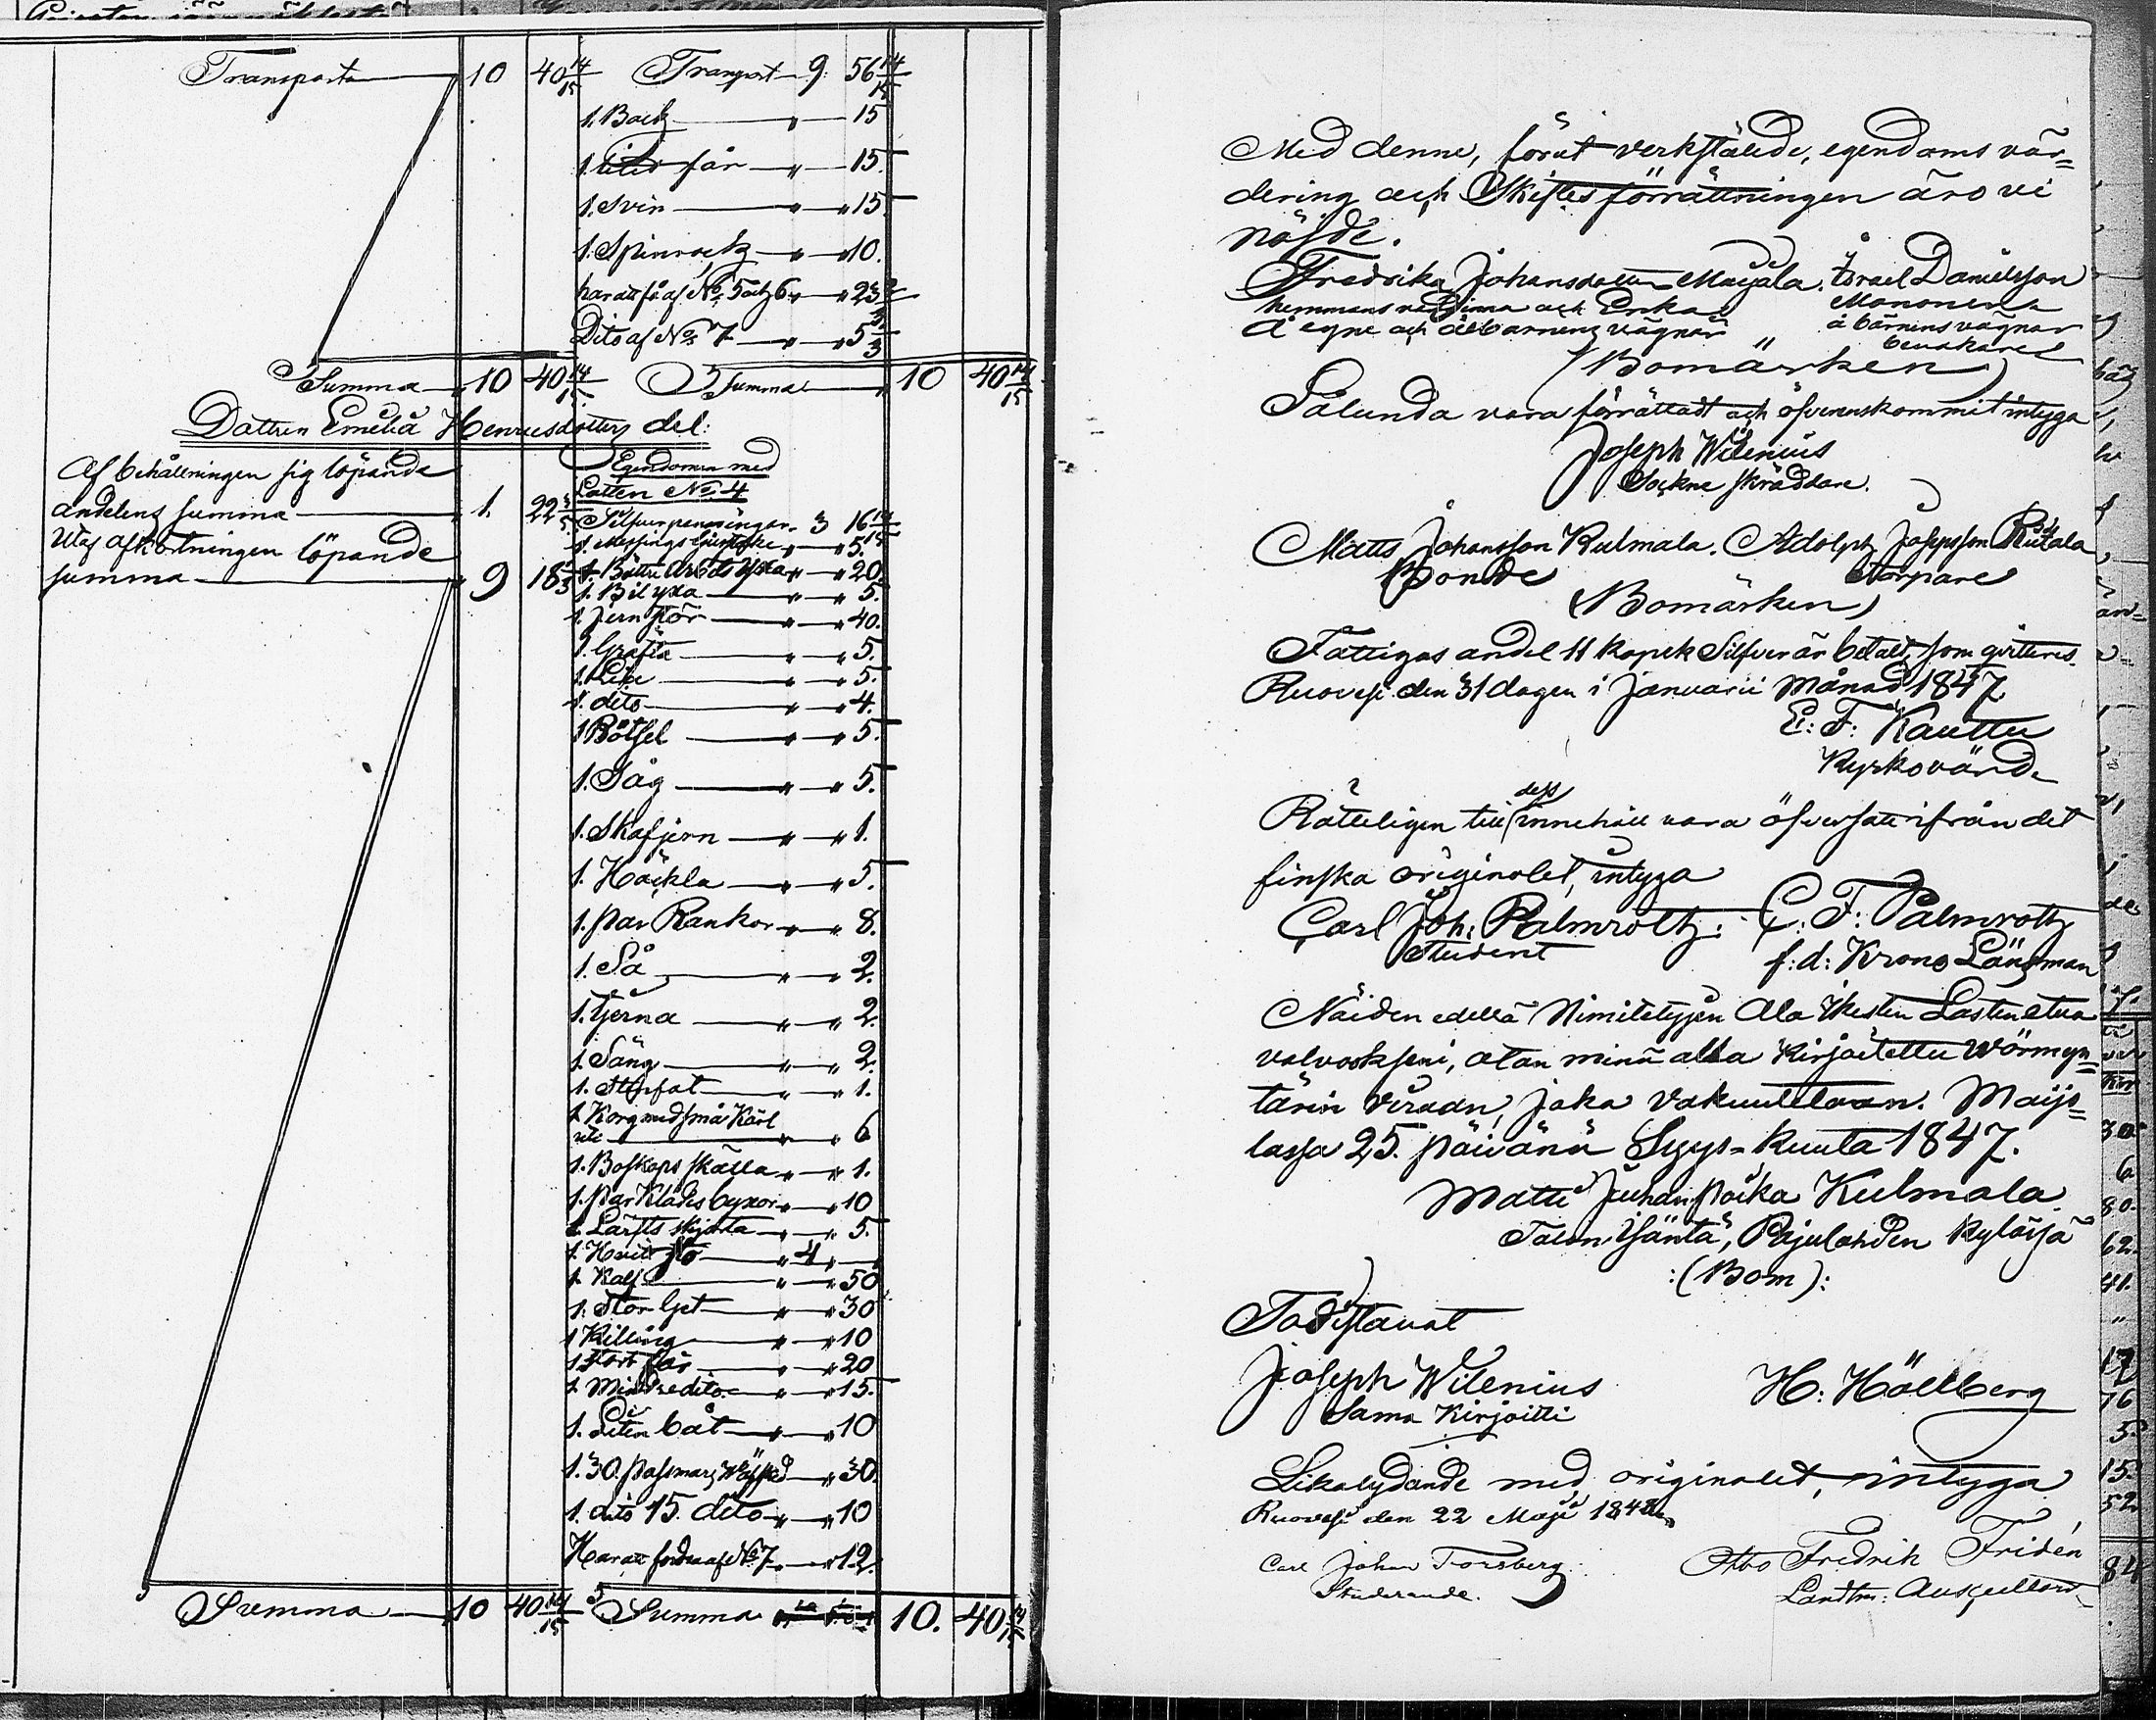 Transport 10 40 14/15
Transport 9. 56 14/15
1. Bock " 15
1. får " 15.
1. Svin " " 15.
1. Spinrock " " 10.
har att få af No 5 och 6 " " 23
Dito af No 7 " " 5
Summa 10 40 14/15
Summa 10 40 14/15
Dottren Emelia Henricsdotters del:
Af behållningen sig löpande
andelens summa 1. 22
Utaf afkortningen löpande
summa 9 18
Egendomen med
Lotten No 4
Silfver penningar 3 16 14/15
1. Messings ljusstake " 5.
1. Bättre Arbets yxa " " 20
1. Bilyxa " " 5.
1. Jernstör " " 40.
1. Gräfta " " 5.
1. Lia " " 5.
1. dito " " 4.
1 Bötsel " " 5.
1. Såg " " 5.
1. Skafjern " " 1.
1. Häckla " " 5.
1. par Rankor " " 8.
1. Så " " 2.
1. Tjerna " " 2.
1. Säng " " 2.
1. Stopfat " " 1.
1. Korg med små Kärl
uti " " 6
1. Boskaps skälla " " 1.
1. par Klädes byxor " " 10
1. Lärfts skjorta " " 5.
1. Hvit Ko " 4 "
1. Kalf " " 50
1. Stor Get " " 30
1 Killing " " 10
1. Stort får " " 20
1. Mindre dito " " 15.
1. Liten båt " " 10
1. 30. passmars Nät " 30.
1. dito 15. dito " " 10
Har att fordra af No 7. " 12.
Summa 10 40 14/15
Summa 10. 40 14/15
Med denne, förut verkstälde, egendoms vär=
dering och Skiftes förrättningen äro vi
nöjde.
Fredrika Johansdotter Maijala. Israel Danielsson
hemmans värdinna och Enka Mononen
å egne och älebarnens vägnar å barnens vägnar
bevakare
(Bomärken)
Sålunda vara förrättadt och öfverenskommit intyga
Joseph Wilenius
Sockne skräddare.
Matts Johansson Kulmala. Adolph Josepsson Riitala
Bonde torpare
(Bomärken)
Fattigas andel 11 kopek Silfver är betalt, som qvitteras.
Ruovesi den 31 dagen i Januarii Månad 1847
E: F: Kauttu
Kyrkovärd
Rätteligen till dess innehåll vara öfversatt ifrån det
finska originalet, intyga
Carl Joh: Palmroth: C: F: Palmroth
Student f: d: Krono Länsman
Näiden edellä Nimitetyjen Ala ikesten Lasten etua
valvookseni, otan minä alla kirjoitettu Wörmyn=
tärin viraan, joka vakuutetaan. Maijo=
lassa 25. päivänä Syys=kuuta 1847.
Matti Juhan poika Kulmala
Talon isäntä, Pajulahden kylässä
:(Bom):
Todistavat
Joseph Wilenius H: Hällberg
Sama kirjoitti
Likalydande med originalet, intyga
Ruovesi den 22 Maji 1848
Carl Johan Forsberg. Otto Fredrik Fridén
Studerande. Landtm: Auscultant